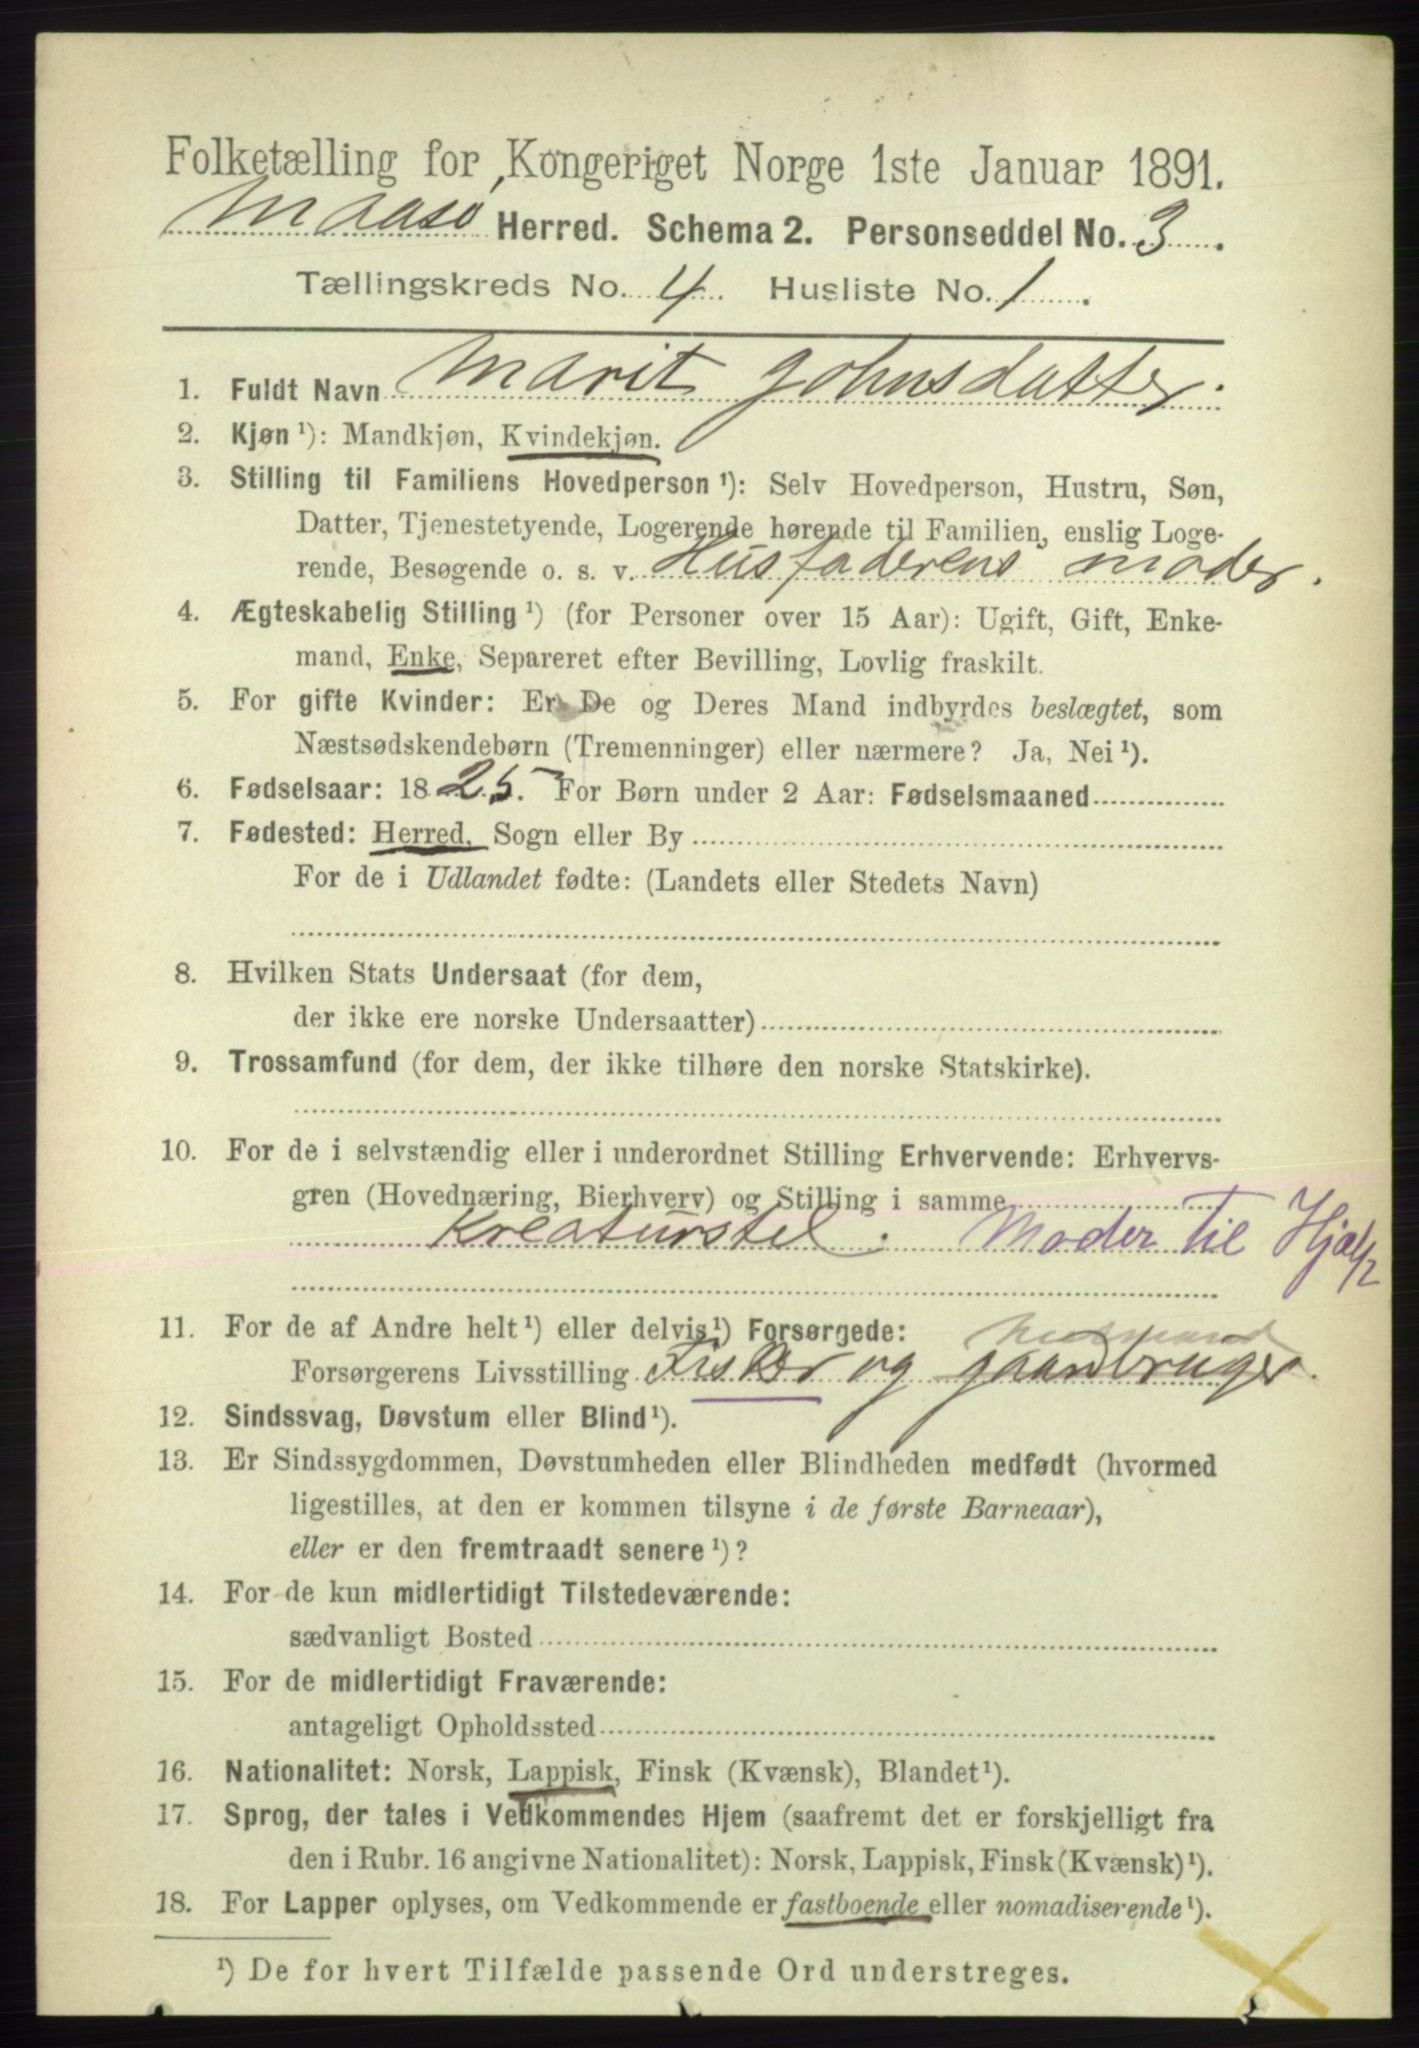 Folketælling for Kongeriget Norge 1ste Januar 1891.
Maasø Herred. Schema 2. Personseddel No. 3.
Tællingskreds No. 4. Husliste No. 1.
1. Fuldt Navn Marit Johnsdatter.
2. Kjøn ¹): Mandkjøn, Kvindekjøn.
3. Stilling til Familiens Hovedperson ¹): Selv Hovedperson, Hustru, Søn,
Datter, Tjenestetyende, Logerende hørende til Familien, enslig Loge-
rende, Besøgende o. s. v. Husfaderens moder.
4. Ægteskabelig Stilling ¹) (for Personer over 15 Aar): Ugift, Gift, Enke-
mand, Enke, Separeret efter Bevilling, Lovlig fraskilt.
5. For gifte Kvinder: Er De og Deres Mand indbyrdes beslægtet, som
Næstsødskendebørn (Tremenninger) eller nærmere? Ja, Nei ¹).
6. Fødselsaar: 1825. For Børn under 2 Aar: Fødselsmaaned
7. Fødested: Herred, Sogn eller By
For de i Udlandet fødte: (Landets eller Stedets Navn)
8. Hvilken Stats Undersaat (for dem,
der ikke ere norske Undersaatter)
9. Trossamfund (for dem, der ikke tilhøre den norske Statskirke).
10. For de i selvstændig eller i underordnet Stilling Erhvervende: Erhvervs-
gren (Hovednæring, Bierhverv) og Stilling i samme
Kreaturstel. Moder til Hjælp
11. For de af Andre helt ¹) eller delvis ¹) Forsørgede:
Forsørgerens Livsstilling Fisker og gaardbruger.
12. Sindssvag, Døvstum eller Blind ¹).
13. Er Sindssygdommen, Døvstumheden eller Blindheden medfødt (hvormed
ligestilles, at den er kommen tilsyne i de første Barneaar),
eller er den fremtraadt senere ¹)?
14. For de kun midlertidigt Tilstedeværende:
sædvanligt Bosted
15. For de midlertidigt Fraværende:
antageligt Opholdssted
16. Nationalitet: Norsk, Lappisk, Finsk (Kvænsk), Blandet ¹).
17. Sprog, der tales i Vedkommendes Hjem (saafremt det er forskjelligt fra
den i Rubr. 16 angivne Nationalitet): Norsk, Lappisk, Finsk (Kvænsk) ¹).
18. For Lapper oplyses, om Vedkommende er fastboende eller nomadiserende ¹).
¹) De for hvert Tilfælde passende Ord understreges.